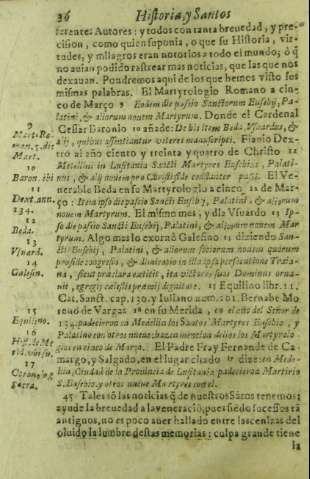 36 Historia, y Santos
ferente: Autores: y todos con tanta breuedad, y pre-
cision, como quien suponia, o que su Historia, vir-
tudes, y milagros eran notorios a todo el mundo; ò q̃
no auian podido rastrear mas noticias, que las que nos
dexauan. Pondremos aqui de los que hemos visto sus
mismas palabras. El Martyrologio Romano a cin-
co de Março 9 Eodem die passio Sanctorum Eusebij, Pa-
latini, & aliorum nouem Martyrum. Donde el Cardenal
Cesar Baronio 10 añade: De his item Beda, Vsuardus, &
alij, quibus assentiuntur veteres manuscripti. Flauio Dex-
tro al año ciento y treinta y quatro de Christo 12
Medellini in Lusitania Sancti Martyres Eusebius, Palati-
nus, & alij nouem pro Christi fide
El Ve-
nerable Beda en su Martyrologio a cinco 12 de Mar-
ço: Item ipso die passio Sancti Eusebij, Palatini, & aliorum
nouem Martyrum. El mismo mes, y dia Vsuardo 13 Ip-
so die passio Sancti Eusebij, Palatini, & aliorum nouem Mar
tyrum. Algo mas lo exornò Galesino 14 diziendo San-
cti Eusebij, Palatini, & aliorum sociorum nouem quorum
professio egregia, & dimicatio in illa ipsa persecutione Traia-
na, sicut praeclara extitit, ita
Dominus orna-
uit, egregijs caelestis praemij dignitate. Equilino lib. 11.
Cat. Sanct. cap. 130. y Iuliano num. 201. Bernabe Mo
reno de Vargas 16 en su Merida, en el año del Señor de
132, padecieron en Medellin los Santos Martyres Eusebio, y
Palatino con otros nueue: hazen mencion dellos los Martyrolo-
gios en cinco de Março. El Padre Fray Fernando de Ca
margo, y Salgado, en el lugar citado 17 dize: en Mede-
llin, Ciudad de la Prouincia de Lusitania, padecieron Martirio
S. Eusebio, y otros nueue Martyres con el.
45 Tales sõ las noticias q̃ de nuestros Sãtos tenemos;
ayude la breuedad a la veneraciõ, pues siẽdo sucessos tã
antiguos, no es poco auer hallado entre las cenizas del
oluido la lumbre destas memorias; culpa grande tiene
la
9
Mart. Ro-
man. 5. die
Mart.
10
Baron. ibi
11
Dext. ann.
134.
12
Beda.
13
Vsuard.
14
Galesin.
15
Equilino.
16
Hist. de Me
17
sacra.